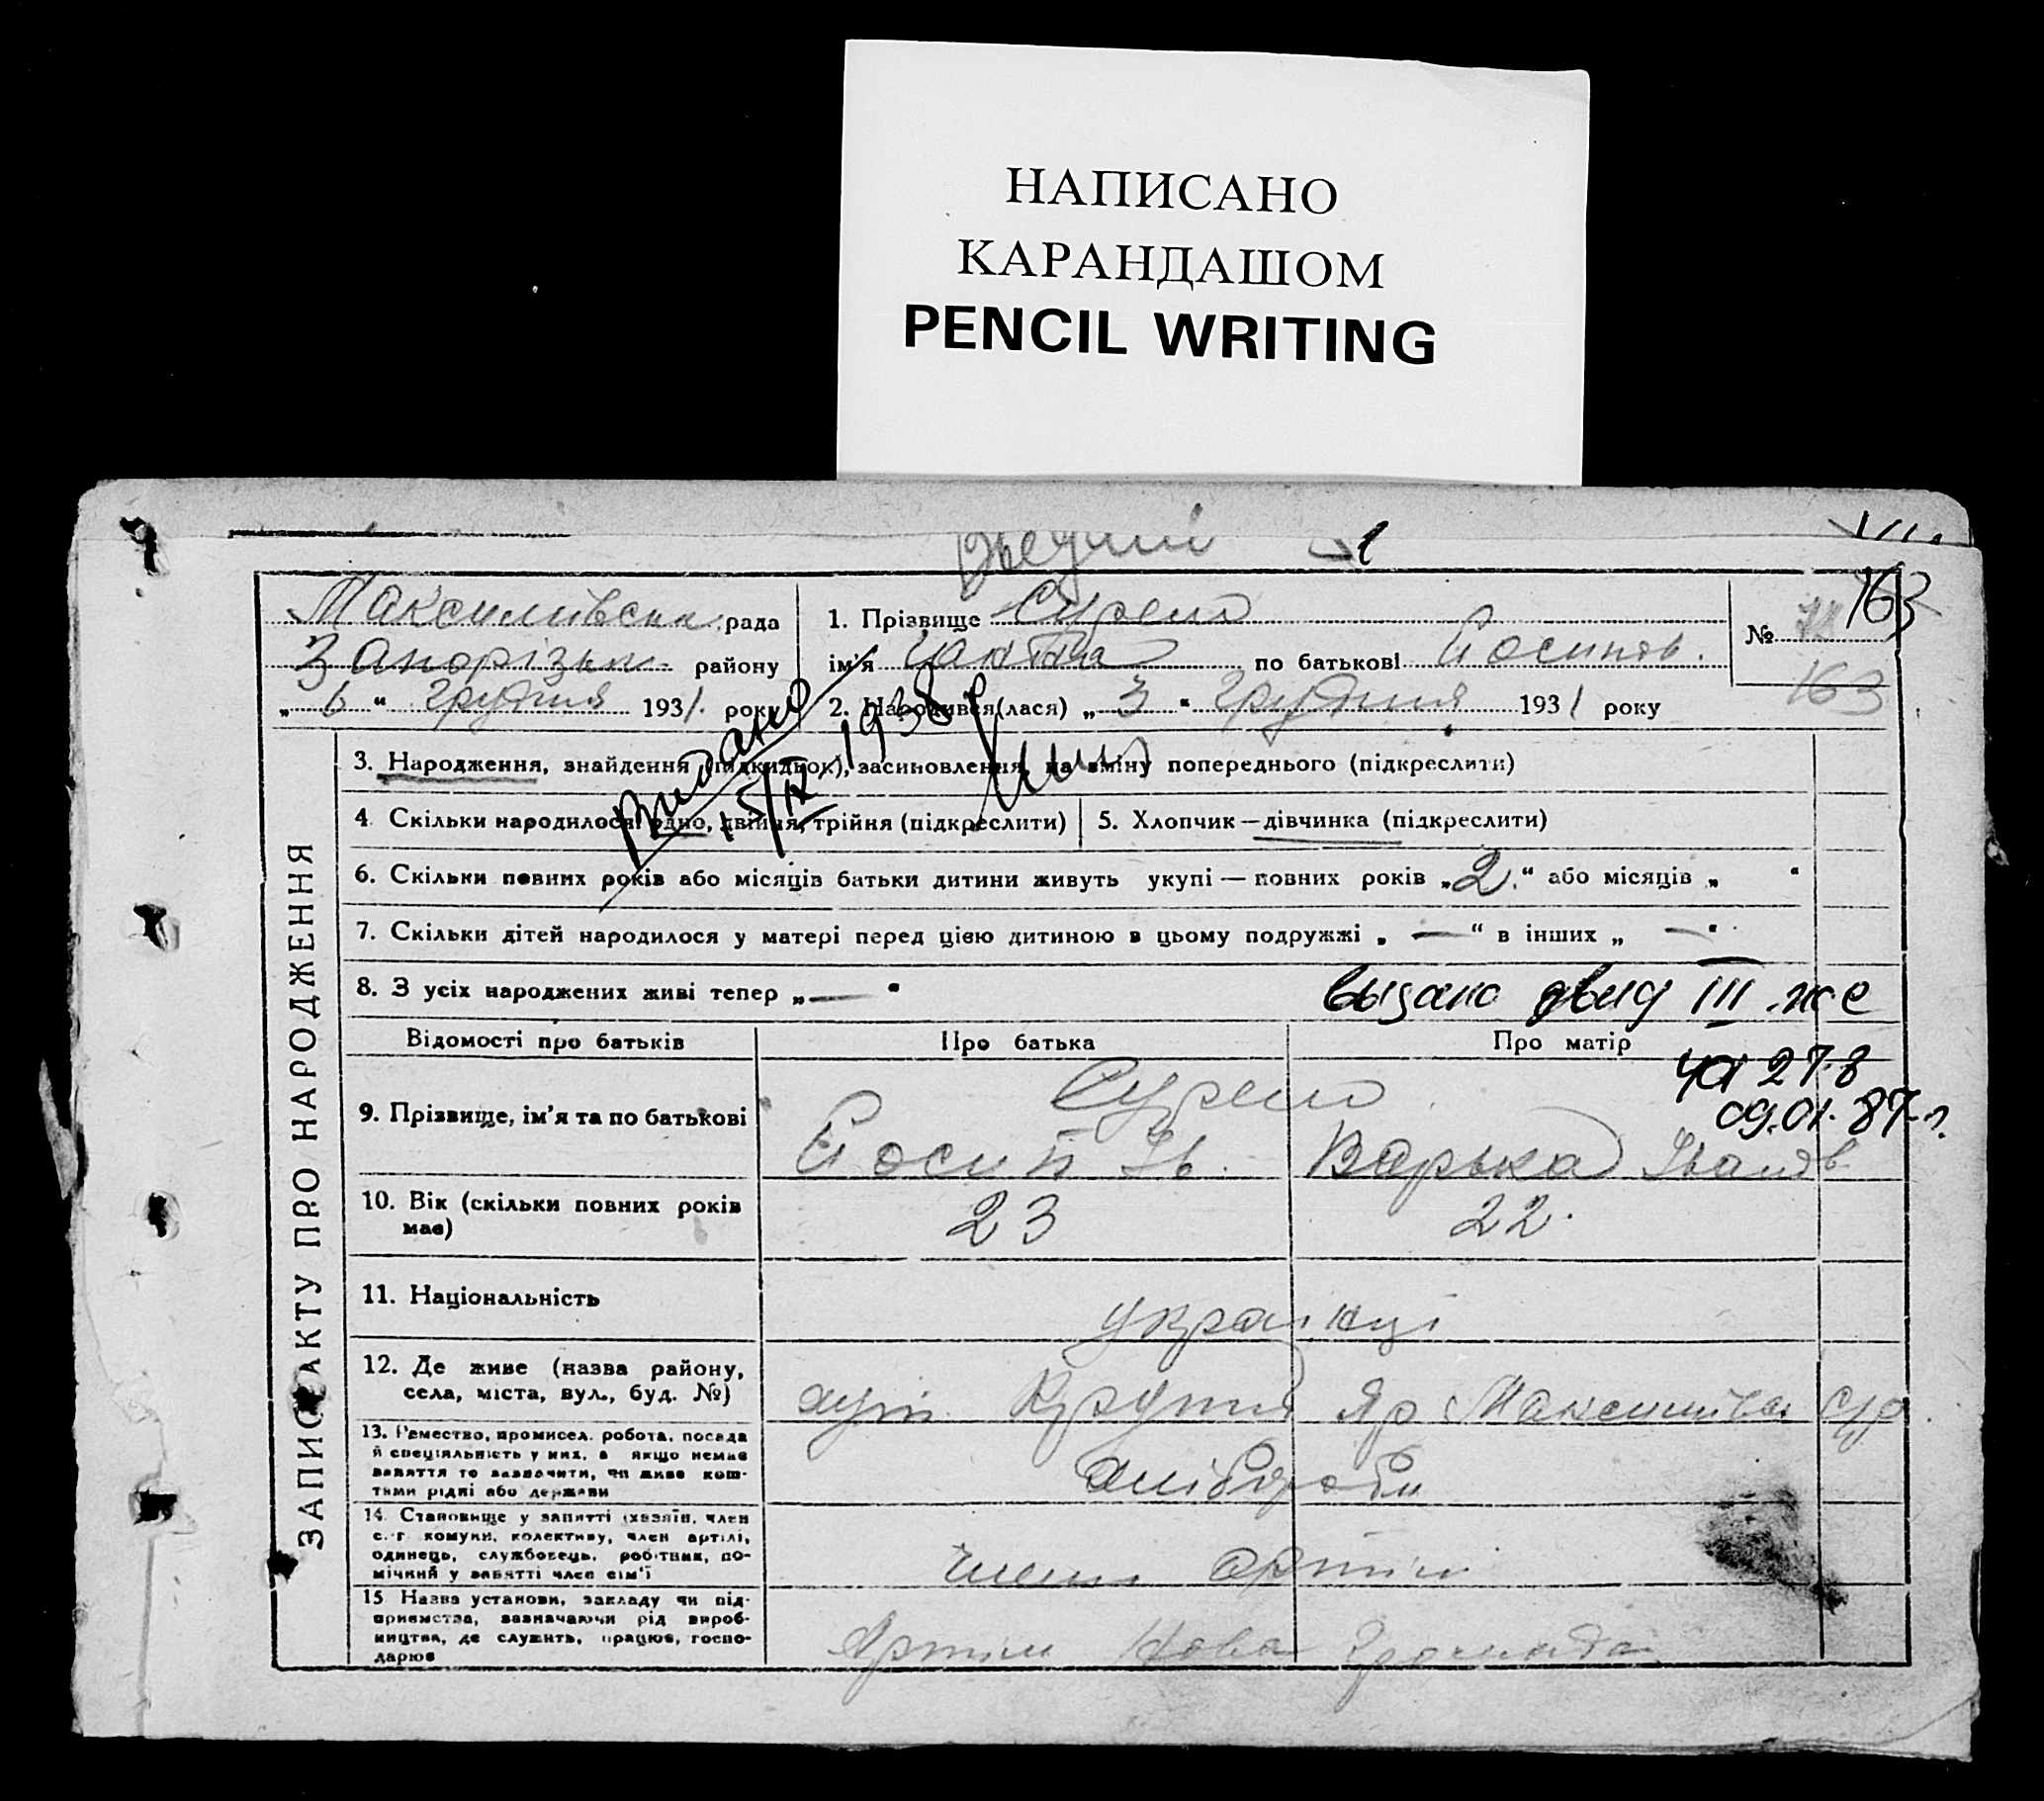 НАПИСАНО
КАРАНДАШОМ
PENCIL WRITING
163
Максимівська рада
Запорізьк. району
„ 6 “ Грудня 1931. року
1. Прізвище
ім'я по батькові Йосипов.
№
163
2. Народився(лася) „ 3 “ Грудня 1931 року
Видано
15/IX 1938 р
ЗАПИС АКТУ ПРО НАРОДЖЕННЯ
3. Народження, знайдення (підкидьок), засиновлення, на зміну попереднього (підкреслити)
4. Скільки народилося: одно, двійня, трійня (підкреслити)
5. Хлопчик—дівчинка (підкреслити)
6. Скільки повних років або місяців батьки дитини живуть укупі — повних років „2.“ або місяців „ “
7. Скільки дітей народилося у матері перед цією дитиною в цьому подружжі „ — “ в інших „ — “
8. З усіх народжених живі тепер „ — “
выдано III
27.8
09.01.87 г.
Відомості про батьків
Про батька
Про матір
9. Прізвище, ім'я та по батькові
Йосип Ів. Варька Іванів
10. Вік (скільки повних років має)
23
22.
11. Національність
українці
12. Де живе (назва району, села, міста, вул., буд. №)
Яр Максимівск с/р.
13. Ремество, промисел, робота, посада й спеціяльність у них, а якщо немає заняття то зазначити, чи живе коштами рідні або держави
хлібороби
14. Становище у занятті (хазяїн, член с.-г. комуни, колективу, член артілі, одинець, службовець, робітник, помічний у занятті член сім'ї
члени артіли
15. Назва установи, закладу чи підприємства, зазначаючи рід виробництва, де служить, працює, господарює
Артіль Нова Громада